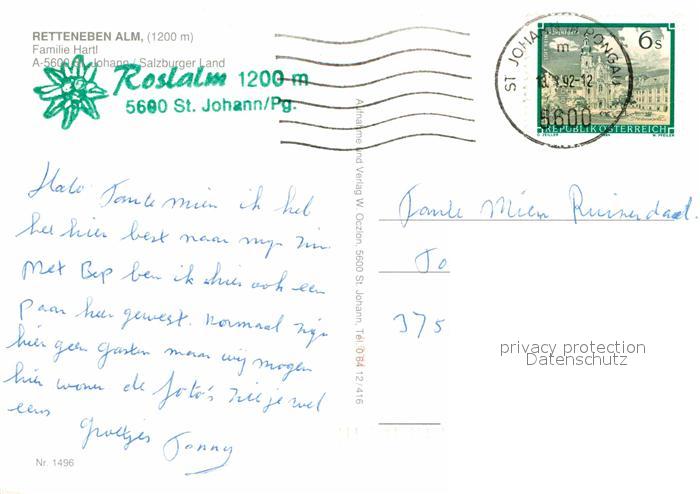 RETTENEBEN ALM, (1200 m)
Familie Hartl
A-5600 St. Johann / Salzburger Land
Roslalm 1200 m
5600 St. Johann/Pg.
ST. JOHANN PONGAU
m
92-12
5600
6 s
REPUBLIK ÖSTERREICH
Halo Tante mien ik heb
het hier best naar mijn zin
Met Bep ben ik hier ook een
paar keer gewest. normaal zijn
hier geen gasten maar wij mogen
hier wonen de foto's zie je wel
eens
Groetjes Tonny
Aufnahme und Verlag W. Oczlon, 5600 St. Johann, Tel. 0 64 12 / 416
Tante Mien Ruinendaal.
To
375
privacy protection
Datenschutz
Nr. 1496